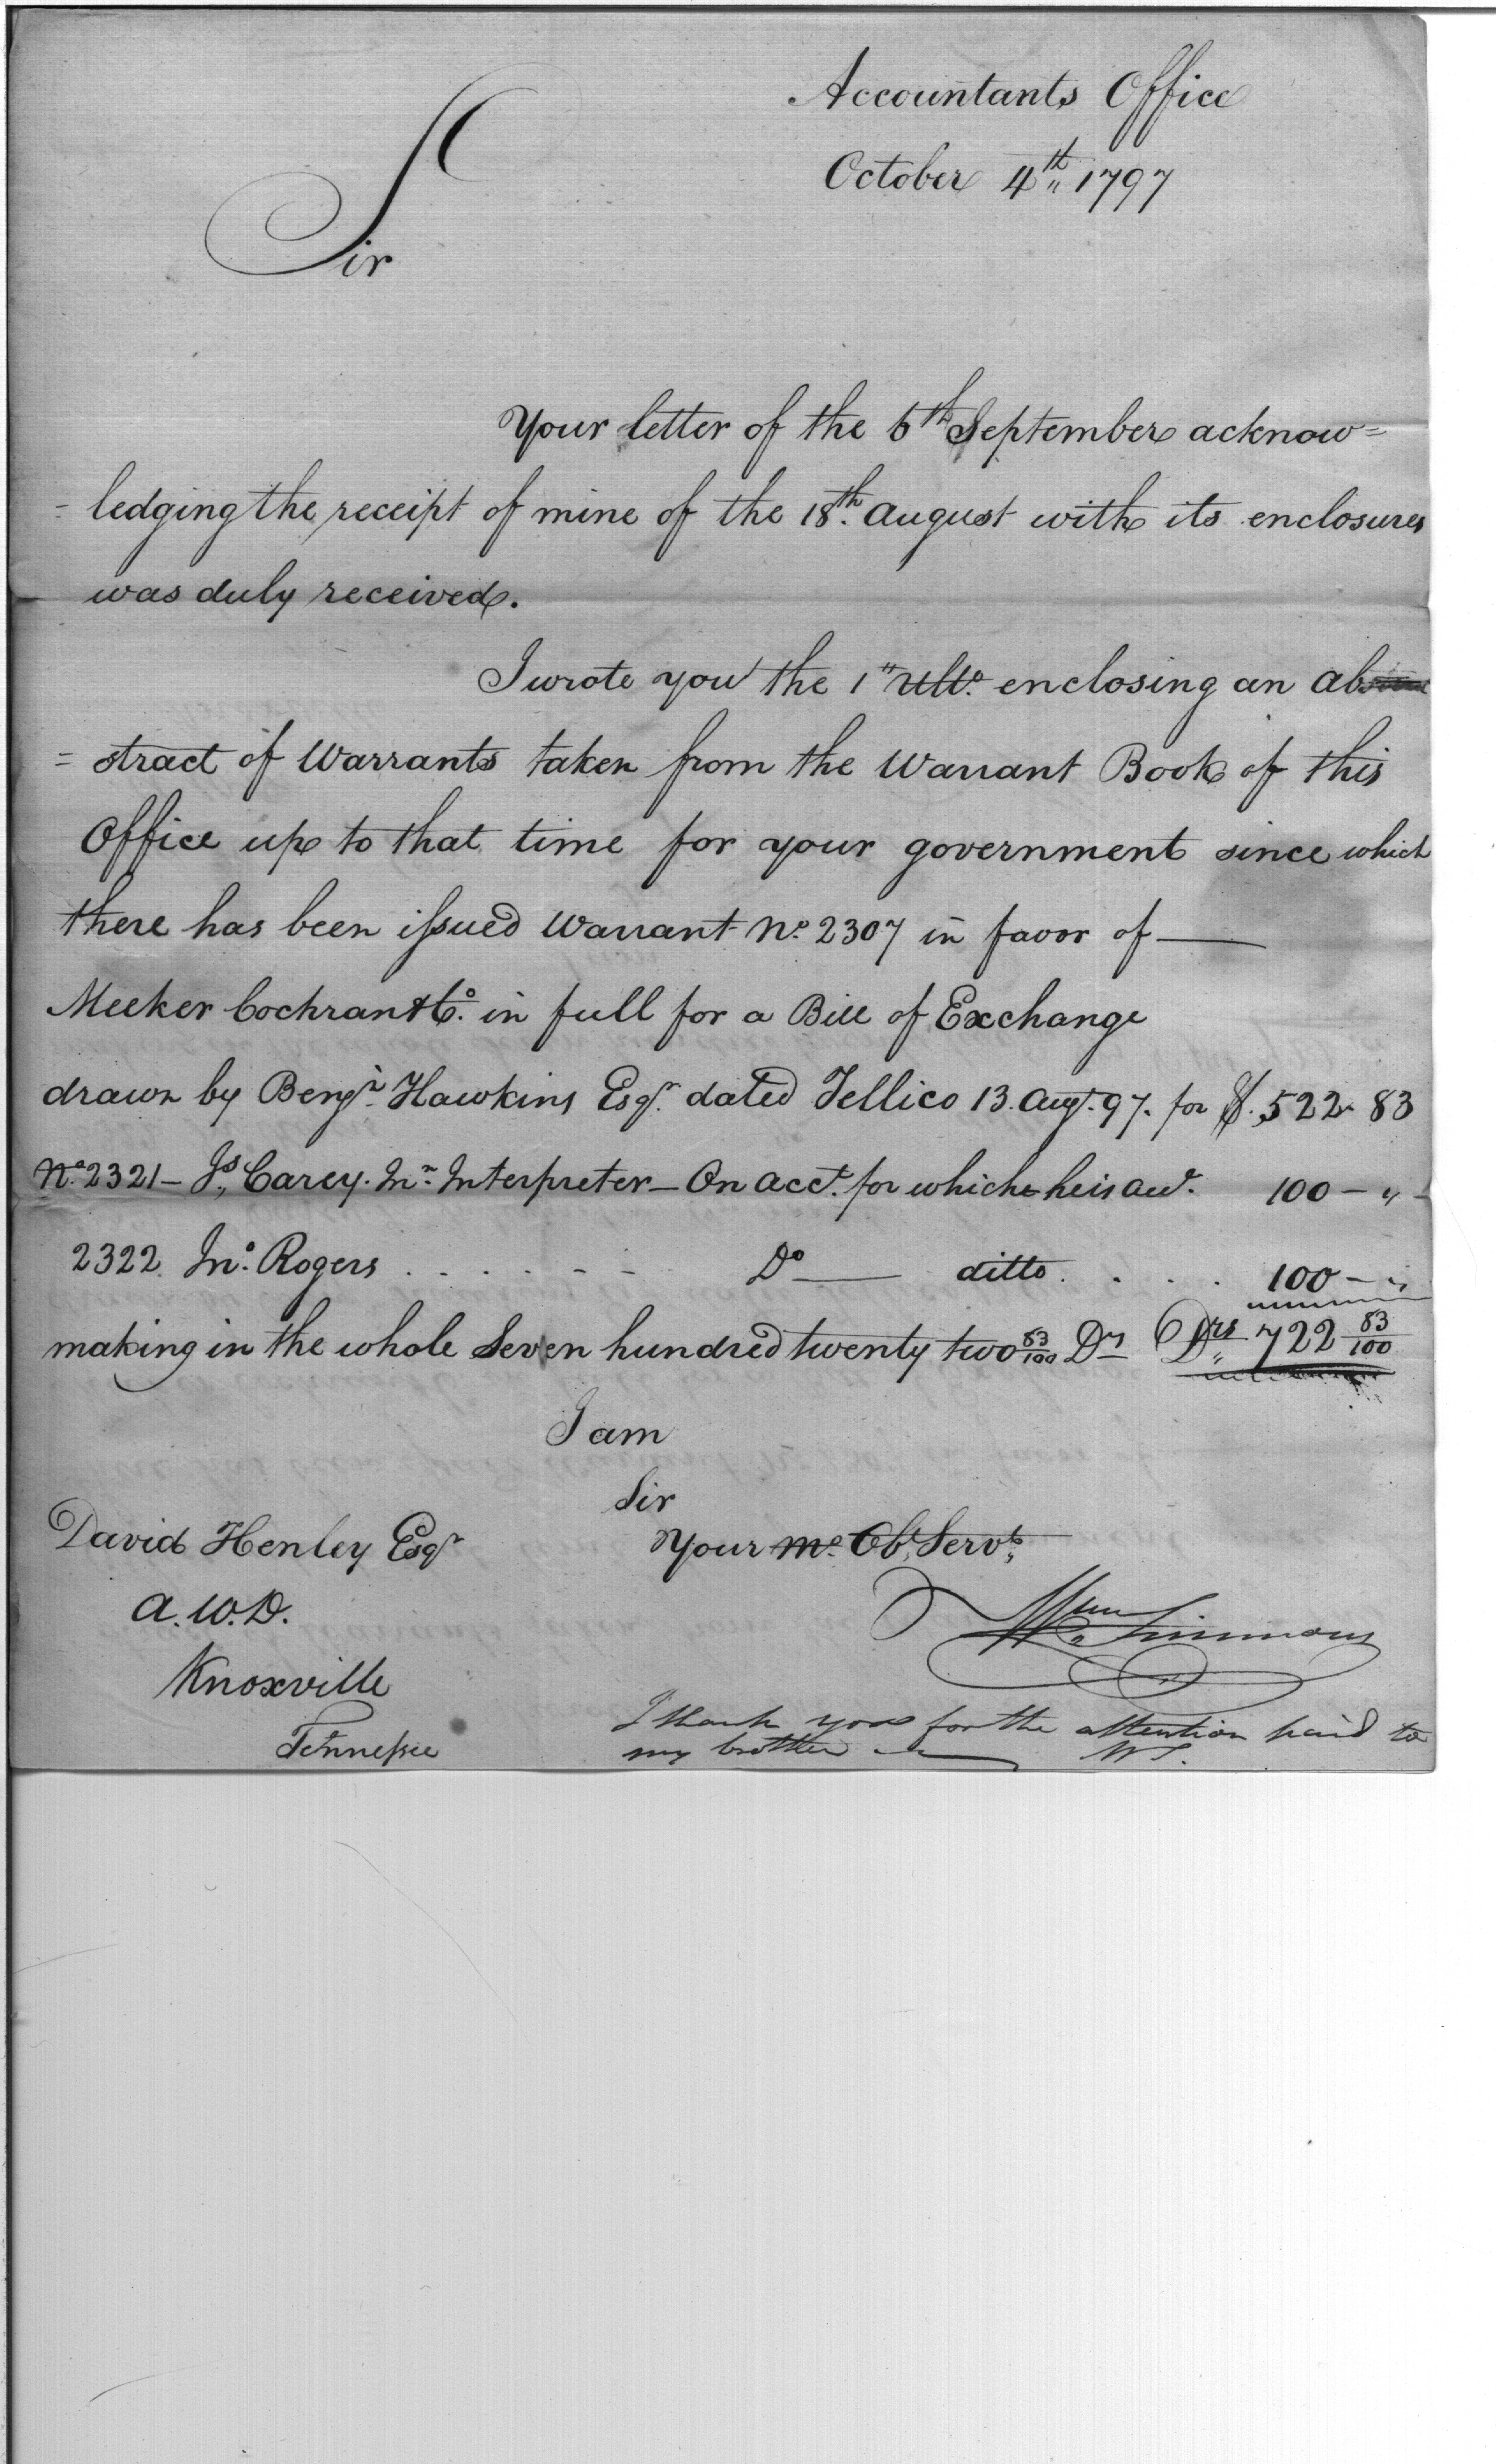 Accountants Office
October 4th 1797
Sir
Your letter of the 5th September acknow=
=ledging the receipt of mine of the 18th. August with its enclosures
was duly received.
I wrote you the 1" Ulto. enclosing an ab
=stract of Warrants taken from the Warrant Book of this
Office up to that time for your government since which
there has been issued Warrant No. 2307 in favor of —
Meeker Cochran & Co. in full for a Bill of Exchange
drawn by Benjn. Hawkins Esqr. dated Tellico 13. Augt. 97. for $. 522. 83
No. 2321 — Js. Carey. Interpreter — On acct. for which he is acct. 100 — "
2322 Jno. Rogers . . . . - - Do — ditto . . . . 100 — "
making in the whole Seven hundred twenty two 83/100 Drs Drs 722 83/100
I am
Sir
David Henley Esqr
Your mo. Obt. Servt.
A. W. D.
Wm. Simmons
Knoxville
Tennessee
I thank you for the attention paid to
my brother — WS.